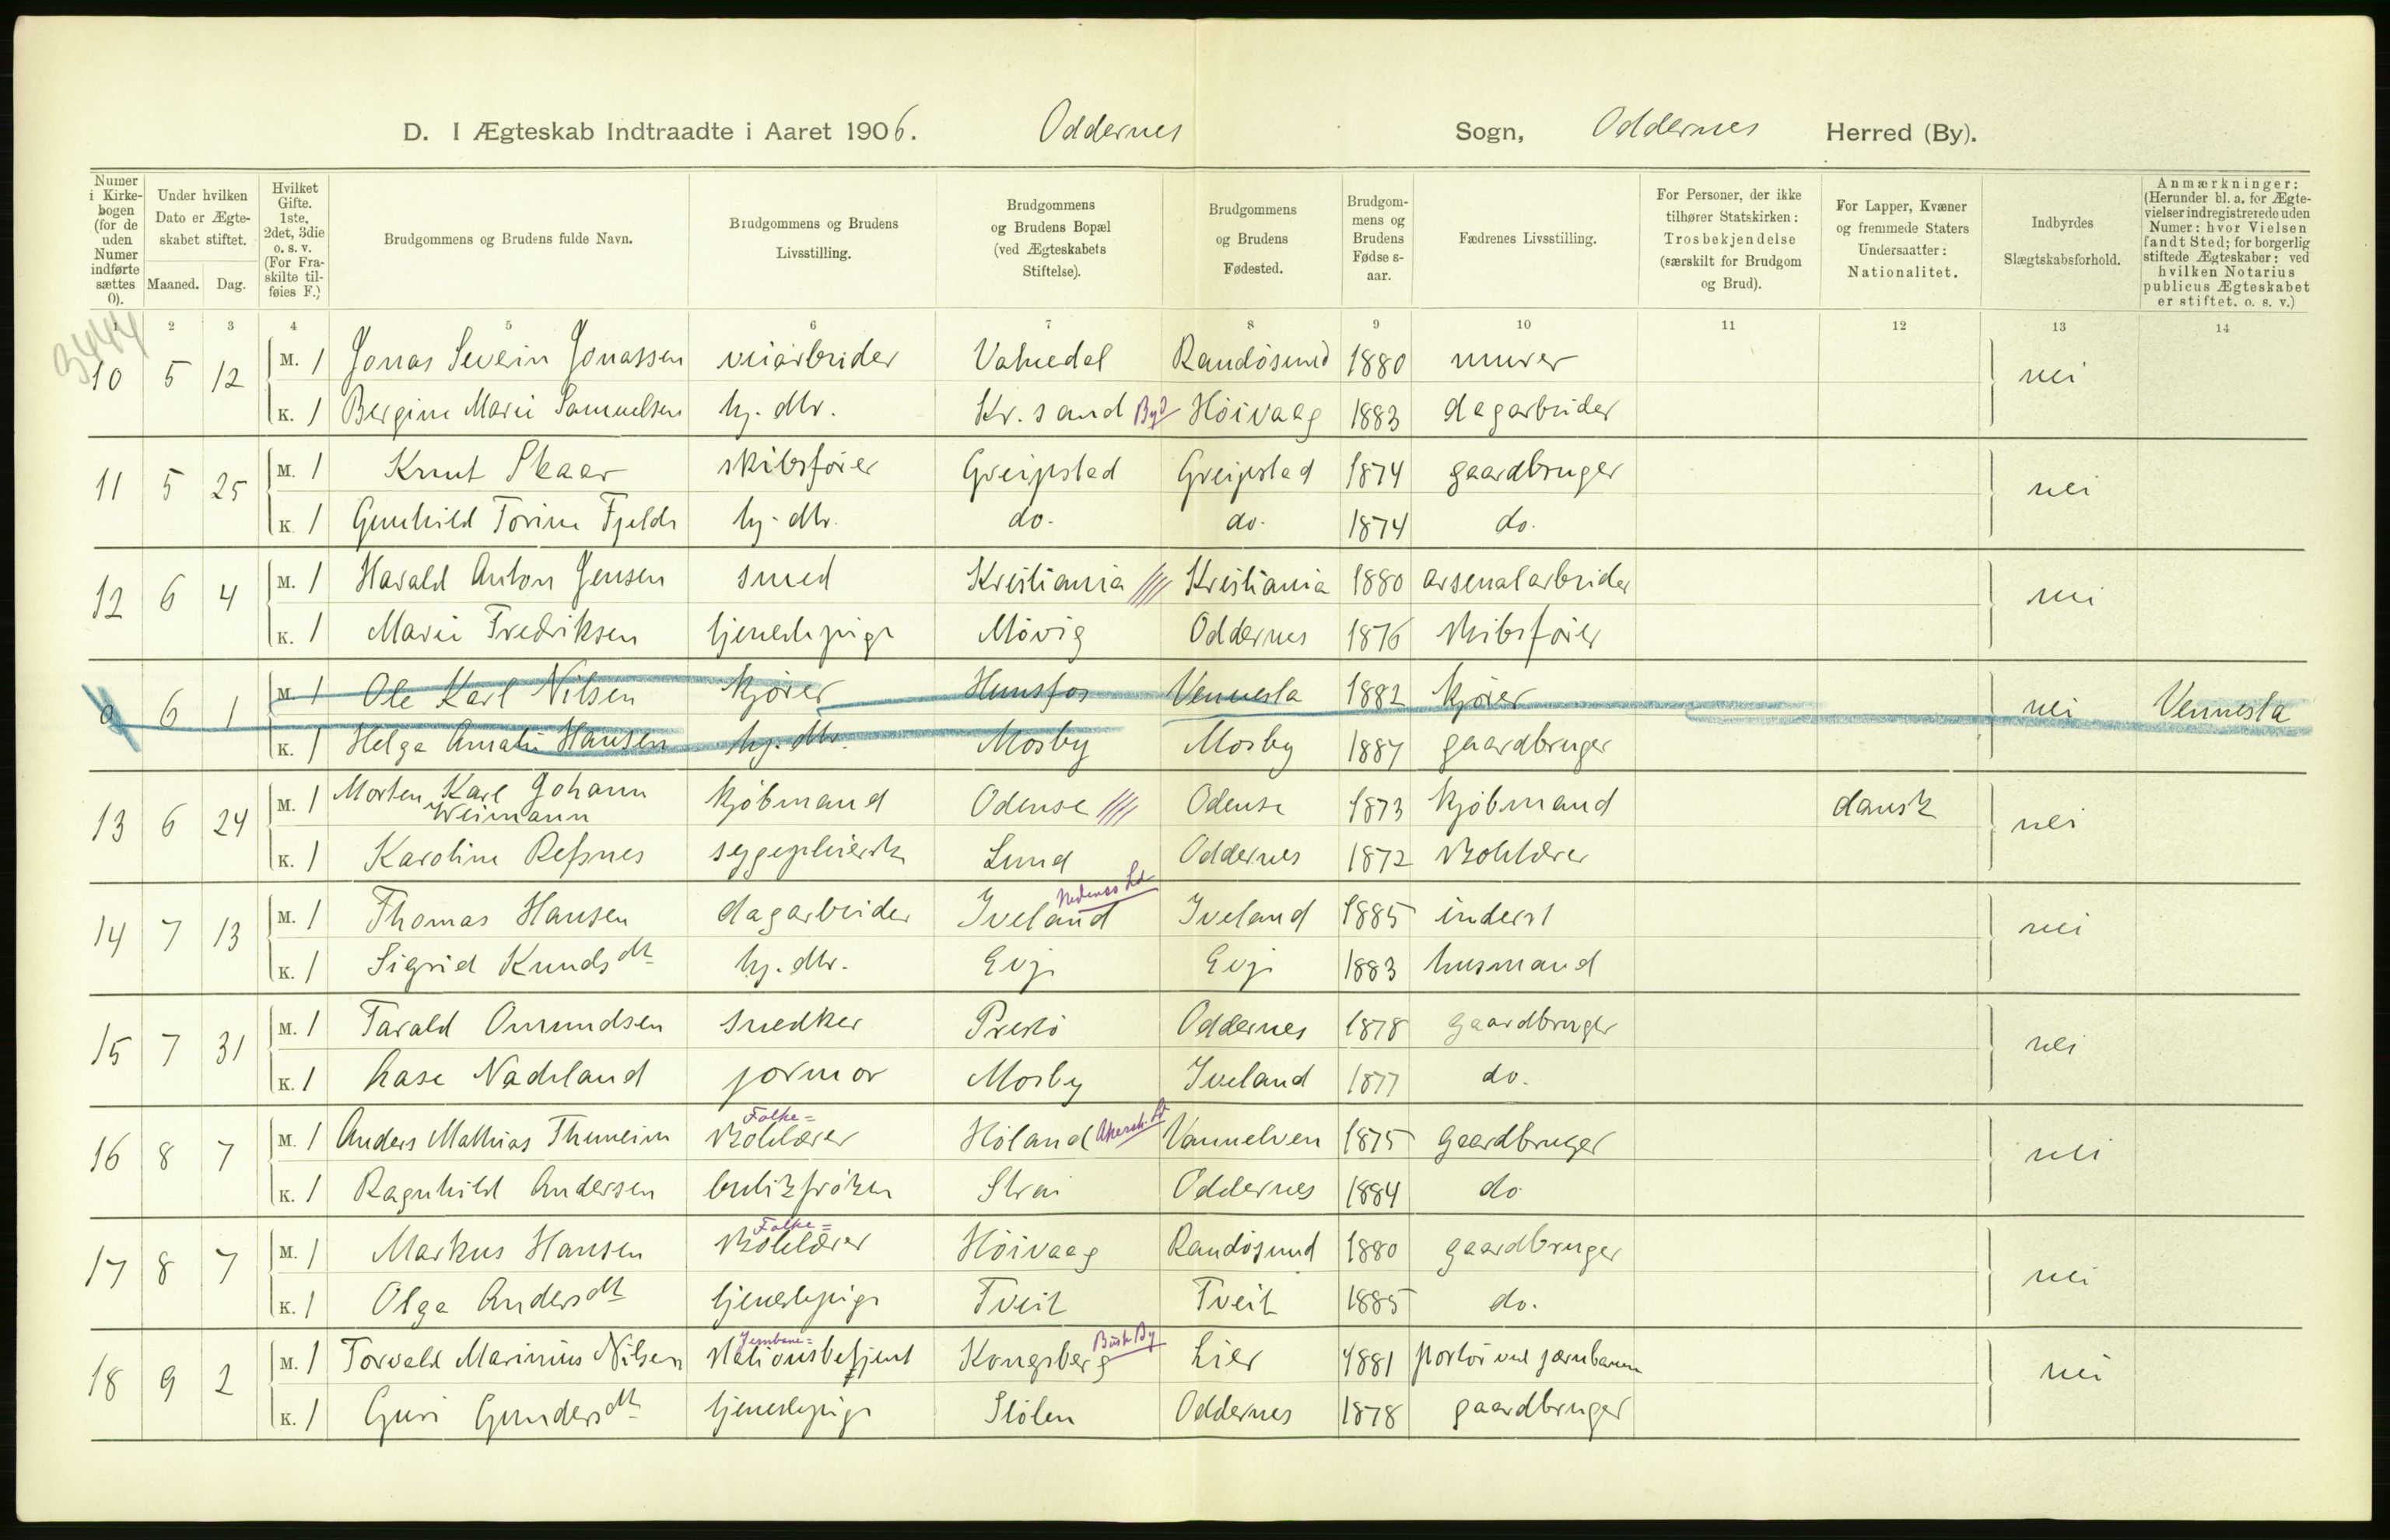 D. I Ægteskab Indtraadte i Aaret 1906. Oddernes Sogn, Oddernes Herred (By).
Numer i Kirkebogen (for de uden Numer indførte sættes 0).
Under hvilken Dato er Ægteskabet stiftet.
Maaned. Dag.
Hvilket Gifte. 1ste, 2det, 3die o. s. v. (For Fraskilte tilføies F.)
Brudgommens og Brudens fulde Navn.
Brudgommens og Brudens Livsstilling.
Brudgommens og Brudens Bopæl (ved Ægteskabets Stiftelse).
Brudgommens og Brudens Fødested.
Brudgommens og Brudens Fødse s-aar.
Fædrenes Livsstilling.
For Personer, der ikke tilhører Statskirken: Trosbekjendelse (særskilt for Brudgom og Brud).
For Lapper, Kvæner og fremmede Staters Undersaatter: Nationalitet.
Indbyrdes Slægtskabsforhold.
Anmærkninger: (Herunder bl. a. for Ægtevielser indregistrerede uden Numer: hvor Vielsen fandt Sted; for borgerlig stiftede Ægteskaber: ved hvilken Notarius publicus Ægteskabet er stiftet. o. s. v.)
1 2 3 4 5 6 7 8 9 10 11 12 13 14
3444
10 5 12 M. 1 Jonas Severin Jonassen veiarbeider Vahredal Randøsund 1880 murer nei
K. 1 Bergine Marie Samuelsen hj. dtr. Kr.sand Byd Höivaag 1883 dagarbeider
11 5 25 M. 1 Knut Skaar skibsfører Greipstad Greipstad 1874 gaardbruger nei
K. 1 Gunhild Torine Fjelds hj. dtr. do. do. 1874 do.
12 6 4 M. 1 Harald Anton Jensen smed Kristiania Kristiania 1880 arsenalarbeider nei
K. 1 Marie Fredriksen tjenestepige Møvig Oddernes 1876 skibsfører
0 6 1 M. 1 Ole Karl Nilsen kjører Hunsfos Vennesla 1882 kjører nei Vennesla
K. 1 Helga Amalie Hansen hj. dtr. Mosby Mosby 1887 gaardbruger
13 6 24 M. 1 Morten Karl Johann Weimann kjøbmand Odense Odense 1873 kjøbmand dansk nei
K. 1 Karoline Refsnes sygepleierske Lund Oddernes 1872 skolelærer
14 7 13 M. 1 Thomas Hansen dagarbeider Iveland Nedenes Ld Iveland 1885 inderst nei
K. 1 Sigrid Knudsdtr hj. dtr. Evje Evje 1883 husmand
15 7 31 M. 1 Tarald Omundsen snedker Prestø Oddernes 1878 gaardbruger nei
K. 1 Aase Nadeland jormor Mosby Iveland 1877 do.
16 8 7 M. 1 Anders Mathias Thuneim Folke= skolelærer Høland Akersh. Ld Vannelven 1875 gaardbruger nei
K. 1 Ragnhild Andersen butikfrøken Strai Oddernes 1884 do
17 8 7 M. 1 Markus Hansen Folke= skolelærer Höivaag Randøsund 1880 gaardbruger nei
K. 1 Olga Andersdtr tjenestepige Tveit Tveit 1885 do.
18 9 2 M. 1 Torvald Marinius Nilsen Jernbane= stationsbetjent Kongsberg Busk By Lier 1881 portør ved jernbanen nei
K. 1 Guri Gundersdtr tjenestepige Stølen Oddernes 1878 gaardbruger